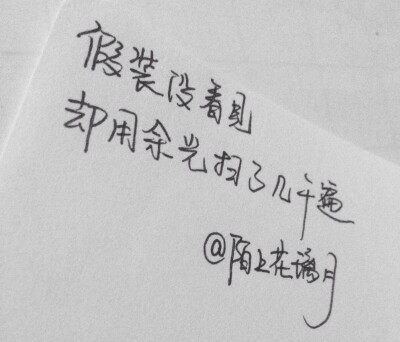 假装没看见
却用余光扫了几千遍
@陌上花璃月